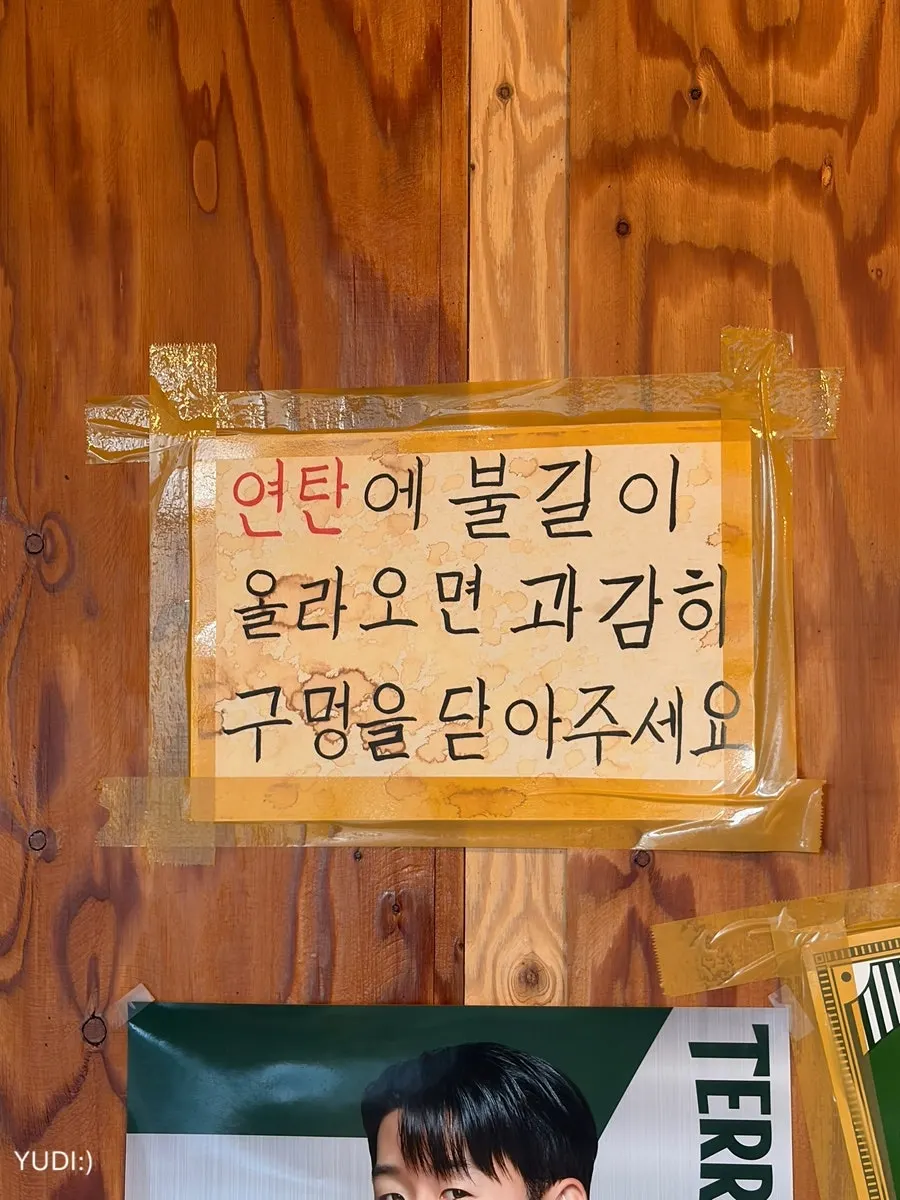 연탄에 불길이
올라오면 과감히
구멍을 닫아주세요
TERR
YUDI:)